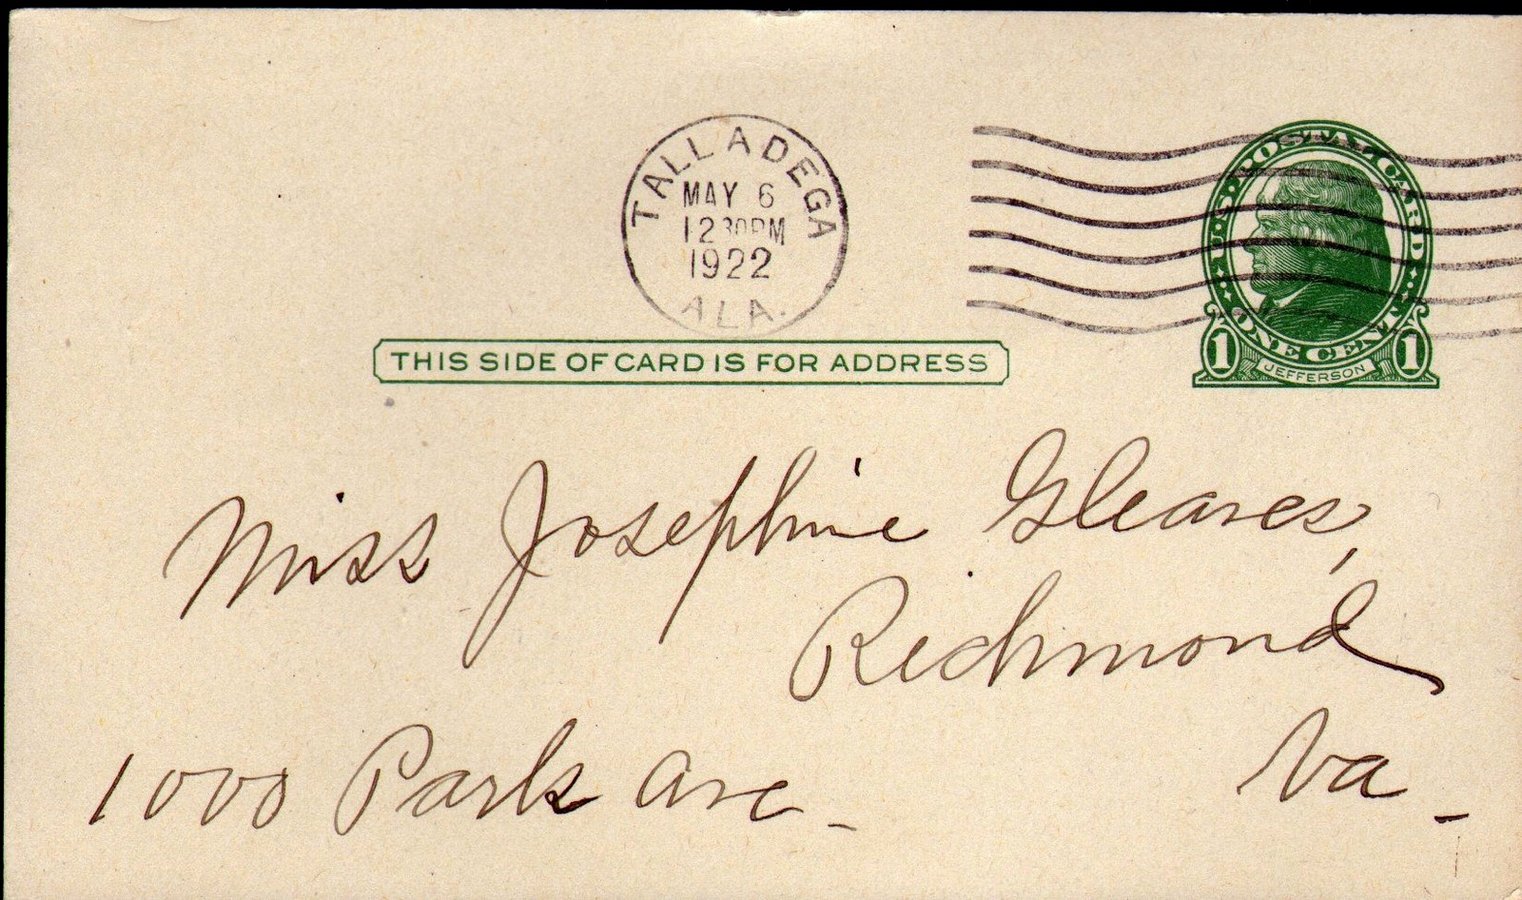 TALLADEGA
MAY 6
12 30PM
1922
ALA.
U·S·POSTAL CARD
ONE CENT
1 JEFFERSON 1
THIS SIDE OF CARD IS FOR ADDRESS
Miss Josephine Gleaves,
Richmond
Va.
1000 Park Ave.